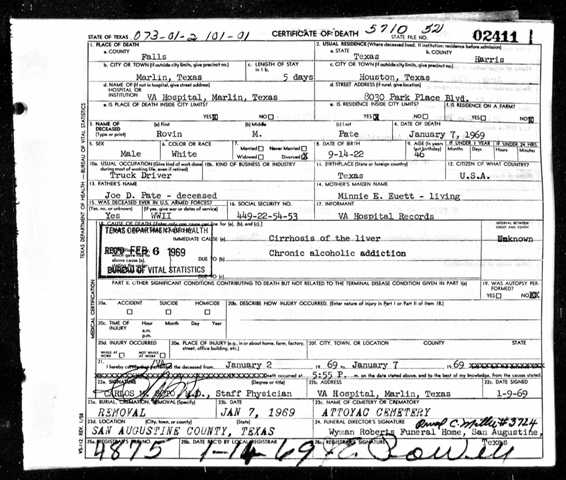 STATE OF TEXAS 073-01-2 101-01 CERTIFICATE OF DEATH 5710 52 STATE FILE NO. 02411
1. PLACE OF DEATH 2. USUAL RESIDENCE (Where deceased lived. If institution: residence before admission)
a. COUNTY Falls a. STATE Texas b. COUNTY Harris
b. CITY OR TOWN (If outside city limits, give precinct no.) c. LENGTH OF STAY c. CITY OR TOWN (If outside city limits, give precinct no.)
Marlin, Texas 5 days Houston, Texas
d. NAME OF (If not in hospital, give street address) HOSPITAL OR INSTITUTION d. STREET ADDRESS (If rural, give location)
VA Hospital, Marlin, Texas 8030 Park Place Blvd.
e. IS PLACE OF DEATH INSIDE CITY LIMITS? e. IS RESIDENCE INSIDE CITY LIMITS? f. IS RESIDENCE ON A FARM?
YES NO YES NO YES NO
3. NAME OF DECEASED (Type or print) (a) First (b) Middle (c) Last 4. DATE OF DEATH
Rovin M. Pate January 7, 1969
5. SEX 6. COLOR OR RACE 7. Married Never Married Widowed Divorced 8. DATE OF BIRTH 9. AGE (In years last birthday) IF UNDER 1 YEAR IF UNDER 24 HRS.
Male White 9-14-22 46 Months Days Hours Min.
10a. USUAL OCCUPATION (Give kind of work done during most of working life, even if retired) 10b. KIND OF BUSINESS OR INDUSTRY 11. BIRTHPLACE (State or foreign country) 12. CITIZEN OF WHAT COUNTRY?
Truck Driver Texas U.S.A.
13. FATHER'S NAME 14. MOTHER'S MAIDEN NAME
Joe D. Pate - deceased Minnie E. Euett - living
15. WAS DECEASED EVER IN U.S. ARMED FORCES? 16. SOCIAL SECURITY NO. 17. INFORMANT
(Yes, no, or unknown) (If yes, give war or dates of service)
Yes WWII 449-22-54-53 VA Hospital Records
18. CAUSE OF DEATH (Enter only one cause per line for (a), (b), and (c).) INTERVAL BETWEEN ONSET AND DEATH
TEXAS DEPARTMENT OF HEALTH
IMMEDIATE CAUSE (a) Cirrhosis of the liver Unknown
REC'D FEB 6 1969 DUE TO (b) Chronic alcoholic addiction
BUREAU OF VITAL STATISTICS DUE TO (c)
PART II. OTHER SIGNIFICANT CONDITIONS CONTRIBUTING TO DEATH BUT NOT RELATED TO THE TERMINAL DISEASE CONDITION GIVEN IN PART I(a) 19. WAS AUTOPSY PERFORMED?
YES NO
20a. ACCIDENT SUICIDE HOMICIDE 20b. DESCRIBE HOW INJURY OCCURRED. (Enter nature of injury in Part I or Part II of Item 18.)
20c. TIME OF INJURY Hour a.m. p.m. Month Day Year
20d. INJURY OCCURRED WHILE AT WORK NOT WHILE AT WORK 20e. PLACE OF INJURY (e.g., in or about home, farm, factory, street, office building, etc.) 20f. CITY, TOWN, OR LOCATION COUNTY STATE
21. I hereby certify that attended the deceased from January 2 19 69 to January 7 19 69
Death occurred at 5:55 P. m. on the date stated above, and to the best of my knowledge, from the causes stated.
22a. SIGNATURE (Degree or title) 22b. ADDRESS 22c. DATE SIGNED
CARLOS M. M.D., Staff Physician VA Hospital, Marlin, Texas 1-9-69
23a. BURIAL, CREMATION, REMOVAL (Specify) 23b. DATE 23c. NAME OF CEMETERY OR CREMATORY
REMOVAL JAN 7, 1969 ATTOYAC CEMETERY
23d. LOCATION (City, town, or county) (State) 24. FUNERAL DIRECTOR'S SIGNATURE #3724
SAN AUGUSTINE COUNTY, TEXAS Wyman Roberts Funeral Home, San Augustine, Texas
25a. REGISTRAR'S FILE NO. 25b. DATE REC'D BY LOCAL REGISTRAR 25c. REGISTRAR'S SIGNATURE
4875 1-14-69 Powell
TEXAS DEPARTMENT OF HEALTH — BUREAU OF VITAL STATISTICS
MEDICAL CERTIFICATION